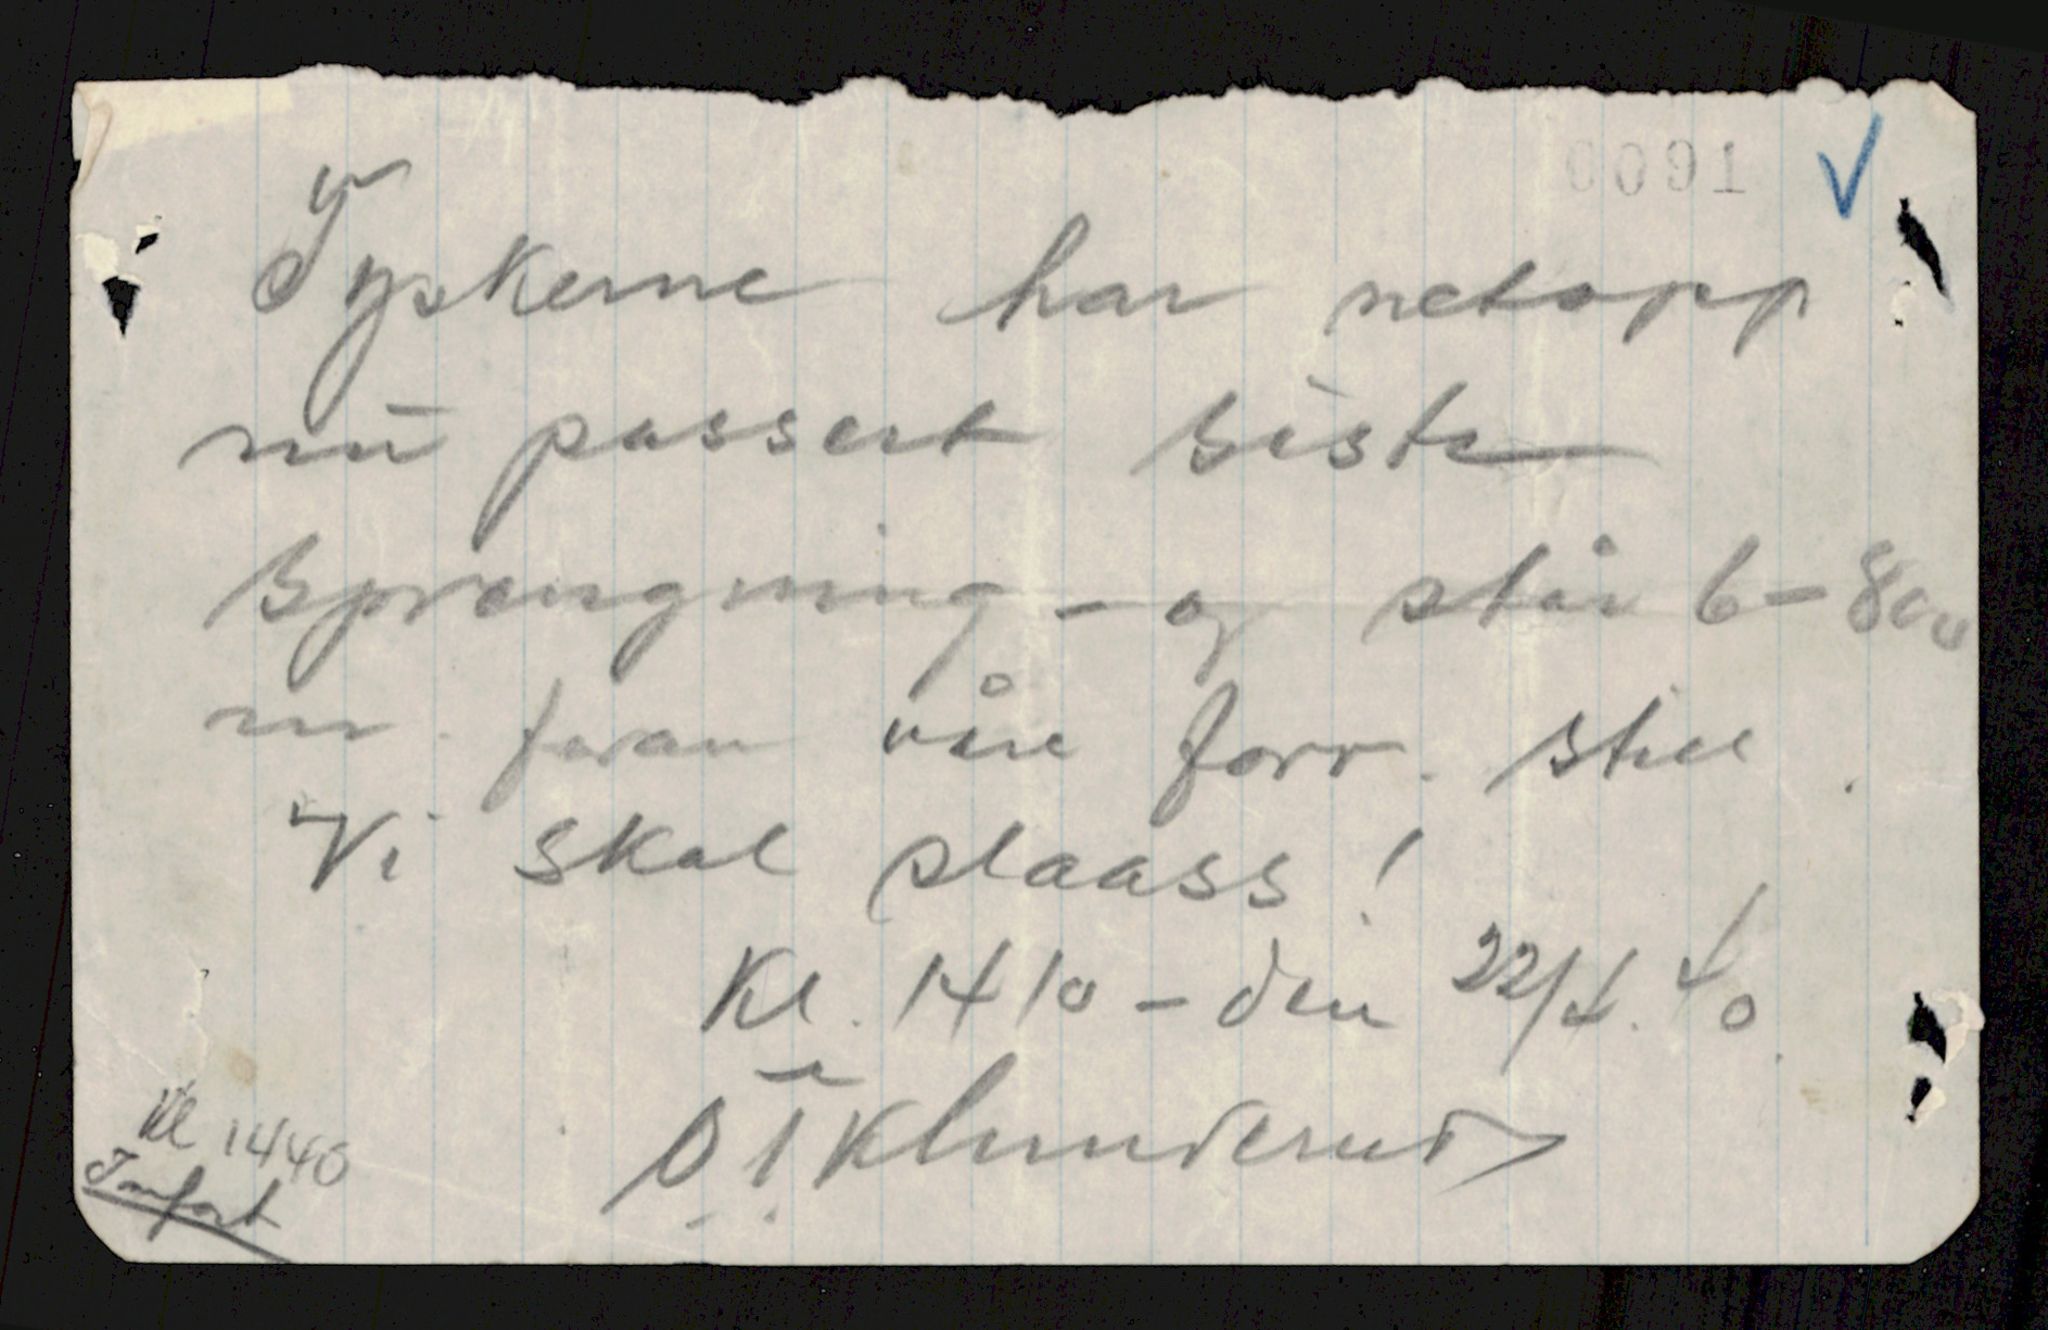 0091
Tyskerne har netopp
nu passert siste
sprengning - og står 6-800
m. foran våre forr. still.
Vi skal slaass!
Kl. 1410 - den 22/4. 40
O T Klunderud
Kl 1440